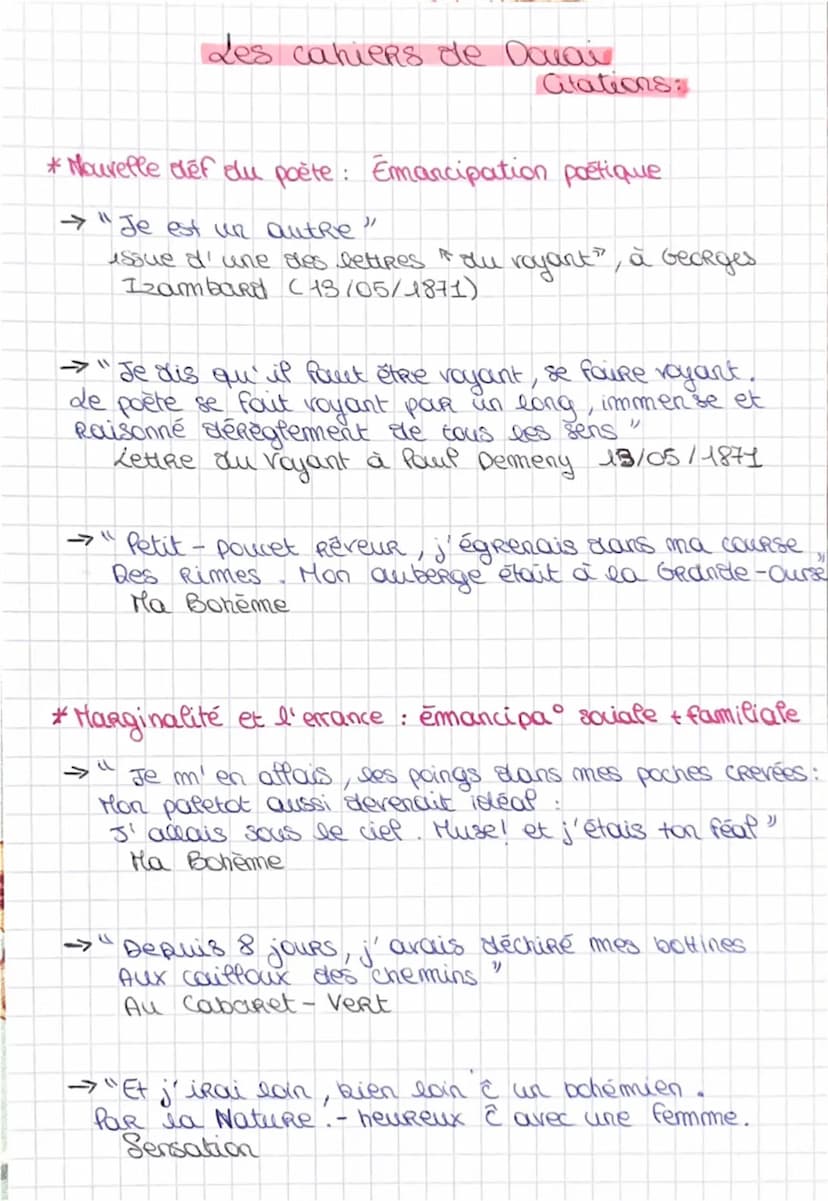 Les cahiers de Douai
Citations:
* Nouvelle déf du poète : Émancipation poétique
→ "Je est un autre"
issue d'une des lettres "du voyant", à Georges
Izambard (13/05/1871)
→ "Je dis qu'il faut être voyant, se faire voyant.
Le poète se fait voyant par un long, immense et
Raisonné dérèglement de tous les sens"
Lettre du Voyant à Paul Demeny 15/05/1871
→ "Petit-poucet rêveur, j'égrenais dans ma course
Des Rimes. Mon auberge était à la Grande-Ourse"
Ma Bohème
* Marginalité et l'errance : émancipa° sociale + familiale
→ "Je m'en allais, les poings dans mes poches crevées:
Mon paletot aussi devenait idéal :
J'allais sous le ciel. Muse! et j'étais ton féal"
Ma Bohème
→ "Depuis 8 jours, j'avais déchiré mes bottines
Aux cailloux des chemins"
Au Cabaret-Vert
→ "Et j'irai loin, bien loin c̄ un bohémien.
Par la Nature.- heureux c̄ avec une femme.
Sensation